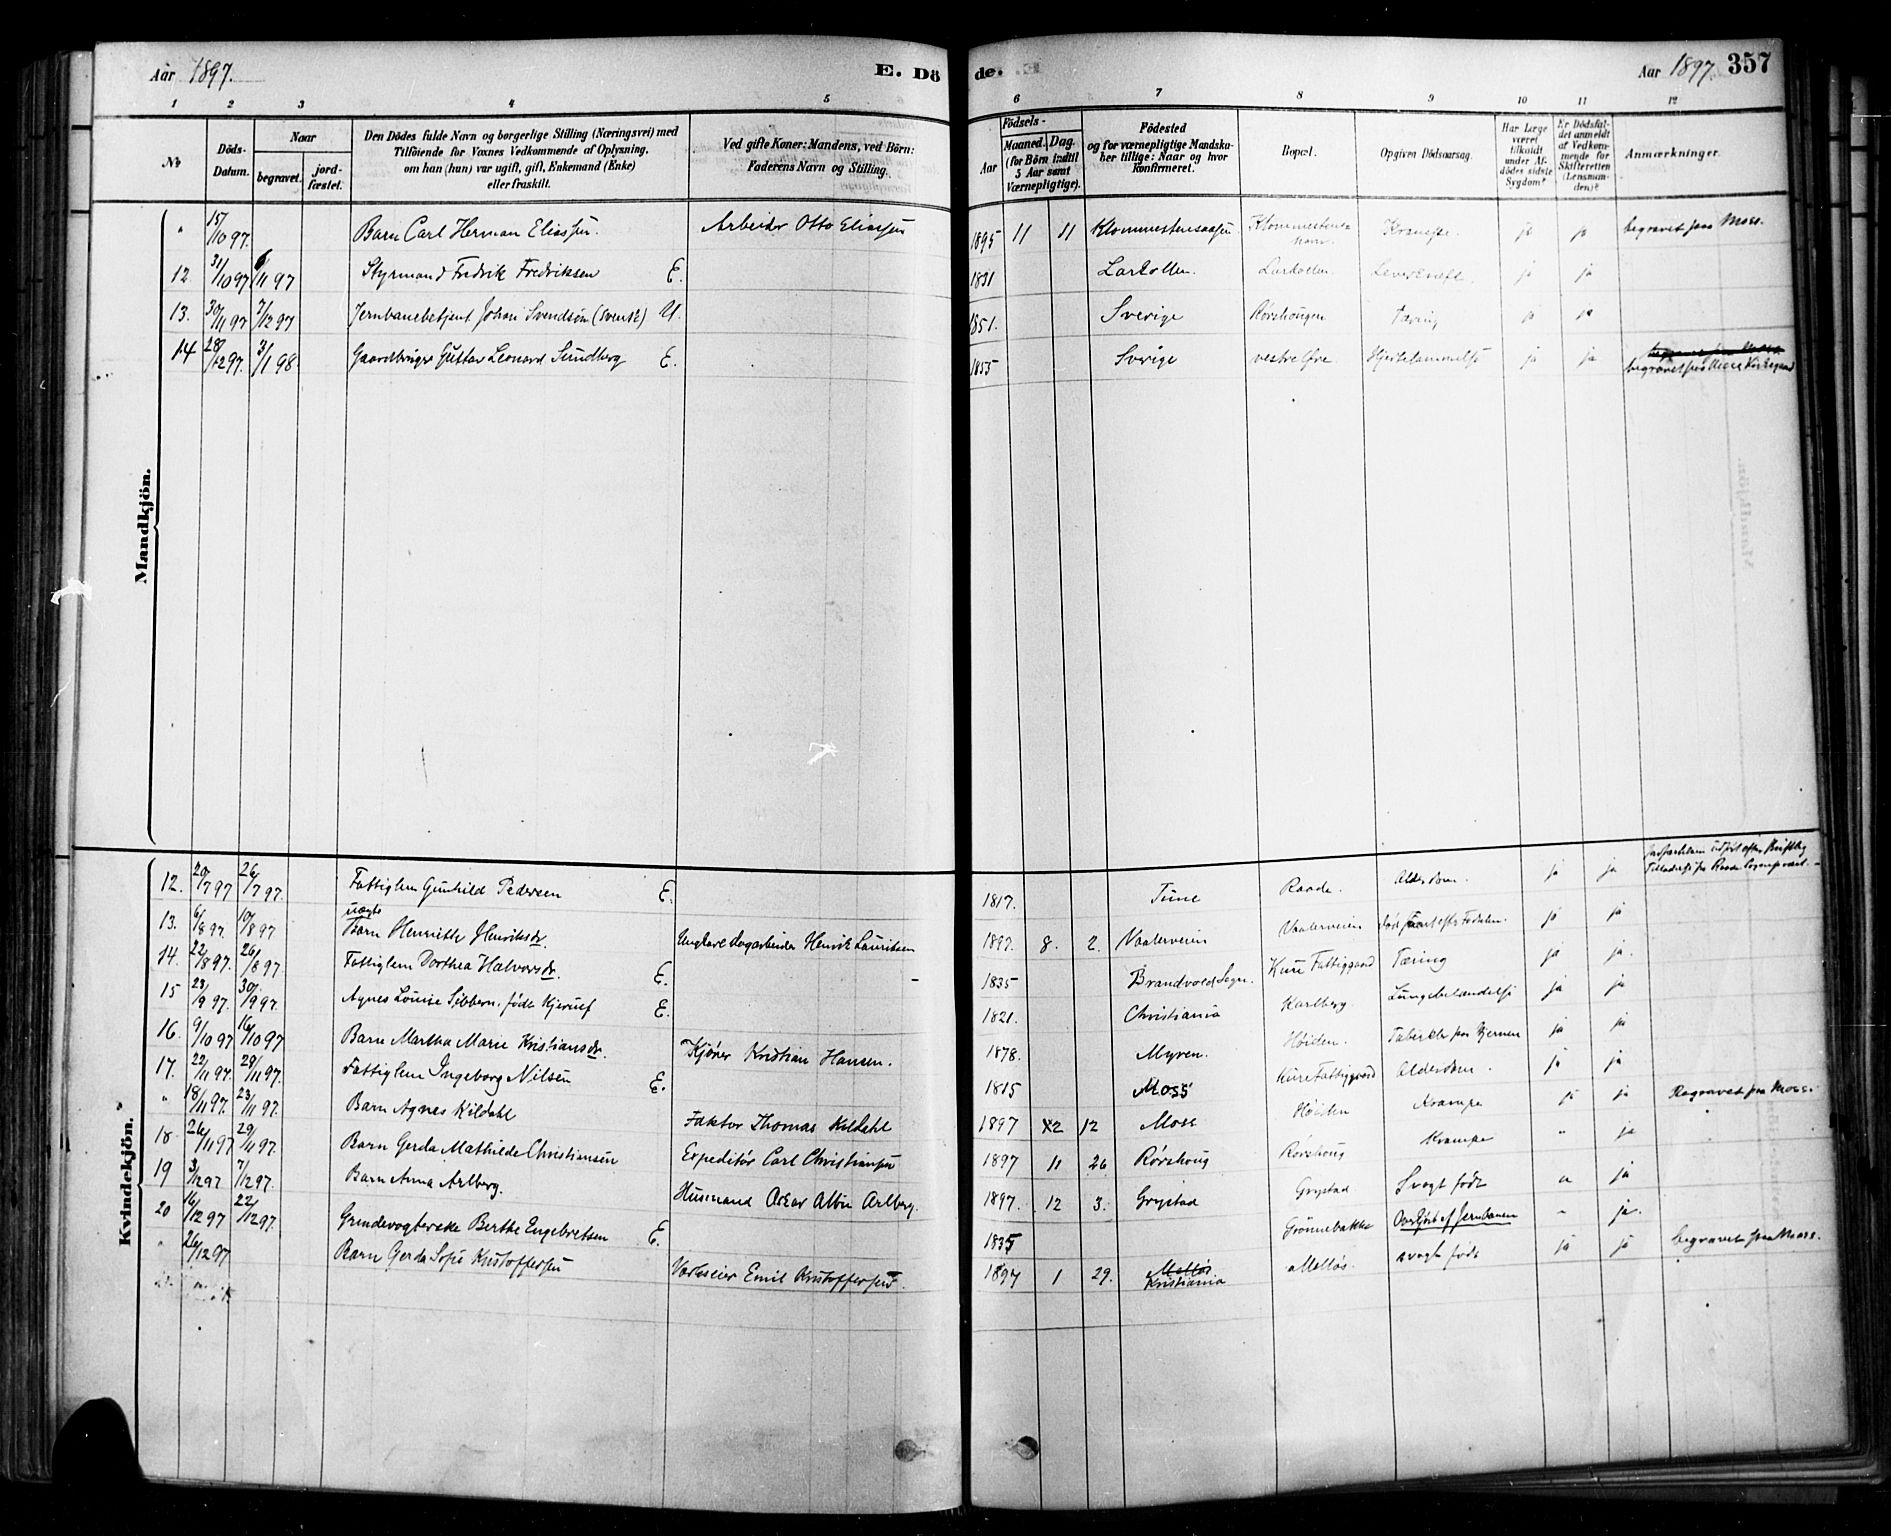 Aar 1897.
E. Dö
de.
Aar 1897.
357
1 2 3 4 5 6 7 8 9 10 11 12
No
Döds-Datum.
Naar
begravet.
jord-fæstet.
Den Dödes fulde Navn og borgerlige Stilling (Næringsvei) med
Tilföiende for Voxnes Vedkommende af Oplysning,
om han (hun) var ugift, gift, Enkemand (Enke)
eller fraskilt.
Ved gifte Koner: Mandens, ved Börn:
Faderens Navn og Stilling.
Födsels-
Aar
Maaned.
Dag.
(for Börn indtil
5 Aar samt
Værnepligtige).
Födested
og for værnepligtige Mandska-
ber tillige: Naar og hvor
konfirmeret.
Bopæl.
Opgiven Dödsaarsag.
Har Læge
været
tilkaldt
under Af-
dödes sidste
Sygdom?
Er Dödsfal-
det anmeldt
af Vedkom-
mende for
Skifteretten
(Lensman-
den)?
Anmærkninger.
Mandkjön.
" 15/10 97. Barn Carl Herman Eliassen. Arbeider Otto Eliassen 1895 11 11 Klommestensaasen ja ja begravet paa Moss.
12 31/10 97 6/11 97 Styrmand Fredrik Fredriksen E. 1831 Larkollen. Larkollen ja ja
13. 30/11 97 7/12 97 Jernbanebetjent Johan Svendsøn (svensk) U. 1851. Sverige Rørshougen Tæring ja ja
14 28/12 97. 3/1 98. Gaardbruger Gustav Leonard Sundberg E. 1855 Sverige vestre ja ja begravet paa Kirkegaard
Kvindekjön.
12. 20/7 97 26/7 97. Fattiglem Gunhild Pedersen E. 1817. Tune Raade. Alderdom. ja ja
13. 6/8 97. 10/8 97 uægte Barn Henriette Henriksdr. Ungkarl dagarbeider Henrik Lauritsen 1897. 8. 2. Vaalerveien Vaalerveien ja ja
14. 22/8 97. 26/8 97. Fattiglem Dorthea Halvorsdr. E. 1835 Brandvold Sogn. Kure Fattiggaard Tæring ja ja.
15 23/9 97. 30/9 97. Agnes Louise Sibbern. født Kjerulf E. 1821. Christiania Karlberg Lungebetændelse ja ja
16. 9/10 97 16/10 97 Barn Martha Marie Kristiansdr. Kjører Kristian Hansen. 1878. Myren. Høiden. ja ja
17. 22/11 97. 28/11 97. Fattiglem Ingeborg Nilsen E. 1815 Moss Kure Fattiggaard Alderdom. ja ja
" 18/11 97. 23/11 97. Barn Agnes Kildahl Faktor Thomas Kildahl 1897 12 Moss Høiden Krampe ja ja Begravet paa Moss.
18 26/11 97 29/11 97. Barn Gerda Mathilde Christiansen Expeditør Carl Christiansen 1897 11 26 Rørshoug Rørshoug Krampe " ja
19 3/12 97 7/12 97. Barn Anna Arlberg. Husmand Oskar Albin Arlberg. 1897. 12 3. Grystad Grystad Svagt født " ja
20 16/12 97 22/12 97. Grindevogterske Berthe Engebretsen E. 1835 Grønnebakke Overkjørt af Jernbanen " ja.
" 26/12 97. Barn Gerda Sofie Kristoffersen Værkseier Emil Kristoffersen. 1897 1 29. Melløs Kristiania Melløs. svagt født ja ja begravet paa Moss.